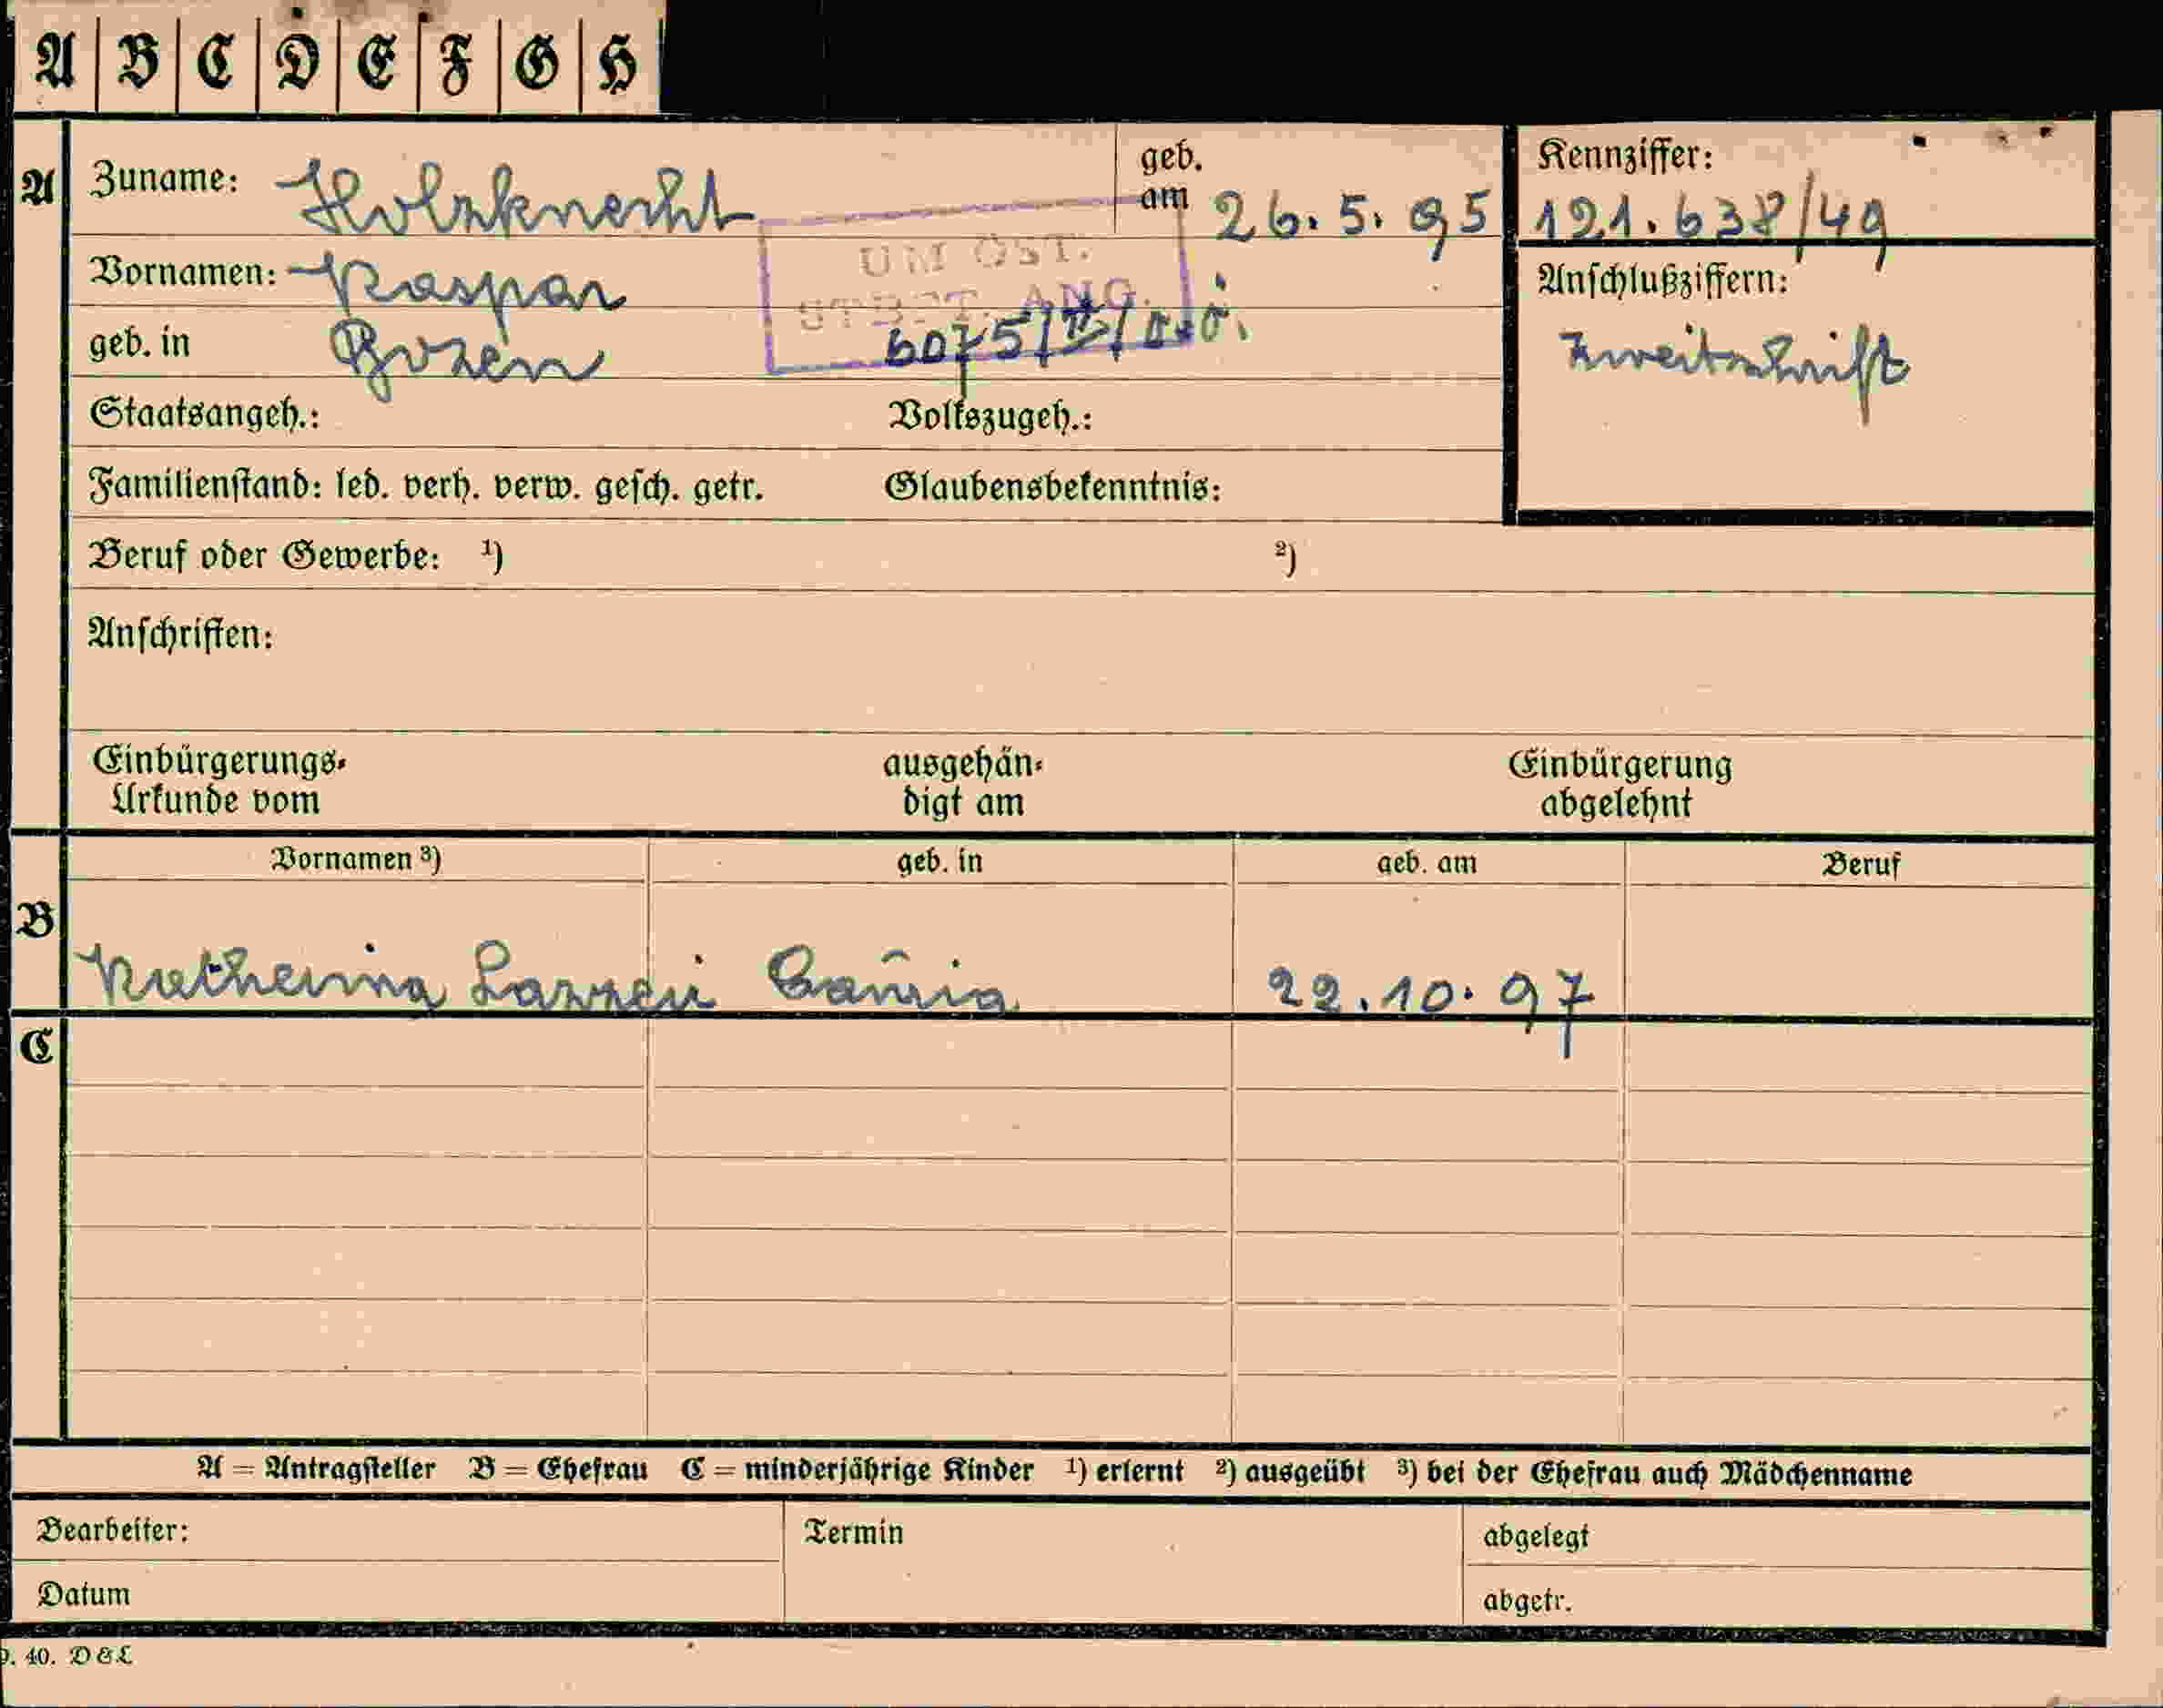 A B C D E F G H
A Zuname: Holzknecht geb. am 26.5.95 Kennziffer: 121.638/49
Vornamen: Kaspar
UM ÖST.
ST. ANG.
Anschlußziffern:
Zweitschrift
geb. in Bozen
Staatsangeh.: Volkszugeh.:
Familienstand: led. verh. verw. gesch. getr. Glaubensbekenntnis:
Beruf oder Gewerbe: 1) 2)
Anschriften:
Einbürgerungs- ausgehän- Einbürgerung
Urkunde vom digt am abgelehnt
Vornamen 3) geb. in geb. am Beruf
B
Katherina 22.10.97
C
A = Antragsteller B = Ehefrau C = minderjährige Kinder 1) erlernt 2) ausgeübt 3) bei der Ehefrau auch Mädchenname
Bearbeiter: Termin abgelegt
Datum abgetr.
40. D & L